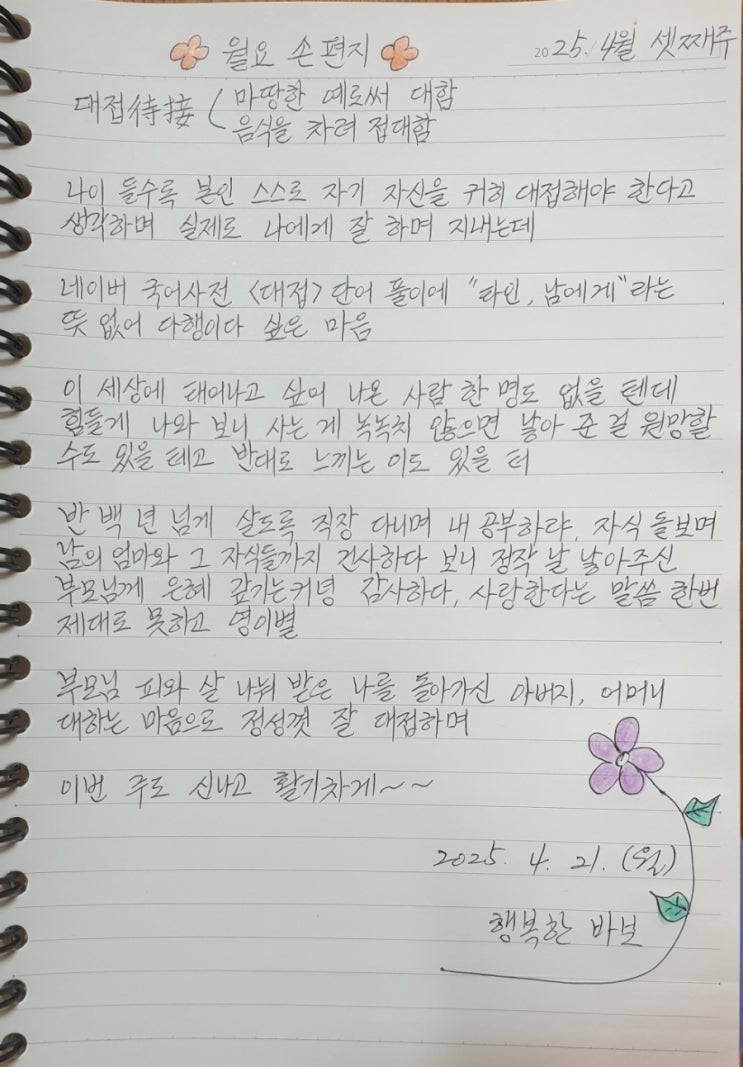 월요 손편지
2025. 4월 셋째주
대접待接 마땅한 예로써 대함
음식을 차려 접대함
나이 들수록 본인 스스로 자기 자신을 귀히 대접해야 한다고
생각하며 실제로 나에게 잘 하며 지내는데
네이버 국어사전 <대접> 단어 풀이에 "타인, 남에게"라는
뜻 없어 다행이다 싶은 마음
이 세상에 태어나고 싶어 나온 사람 한 명도 없을 텐데
힘들게 나와 보니 사는 게 녹녹치 않으면 낳아 준 걸 원망할
수도 있을 테고 반대로 느끼는 이도 있을 터
반 백 년 넘게 살도록 직장 다니며 내 공부하랴, 자식 돌보며
남의 엄마와 그 자식들까지 건사하다 보니 정작 날 낳아주신
부모님께 은혜 갚기는커녕 감사하다, 사랑한다는 말씀 한번
제대로 못하고 영이별
부모님 피와 살 나눠 받은 나를 돌아가신 아버지, 어머니
대하는 마음으로 정성껏 잘 대접하며
이번 주도 신나고 활기차게~~
2025. 4. 21. (월)
행복한 바보